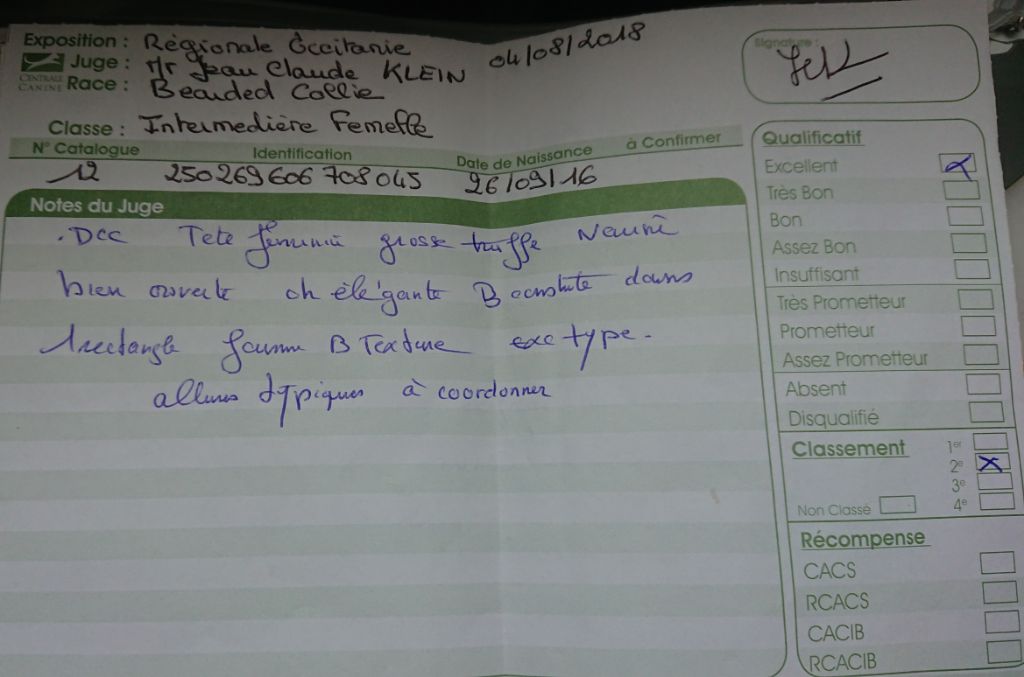 Exposition : Régionale Occitanie 04/08/2018
Juge : Mr Jean Claude KLEIN
CENTRALE CANINE
Race : Bearded Collie
Classe : Intermedière Femelle
N° Catalogue Identification Date de Naissance à Confirmer
12 250269606708045 26/09/16
Notes du Juge
. Dcc Tete grosse truffe
bien ouverte ch élégante B construite dans
1 rectangle B Texture exc type.
allures typiques à coordonner
Signature :
Qualificatif
Excellent
Très Bon
Bon
Assez Bon
Insuffisant
Très Prometteur
Prometteur
Assez Prometteur
Absent
Disqualifié
Classement
1er
2e X
3e
4e
Non Classé
Récompense
CACS
RCACS
CACIB
RCACIB